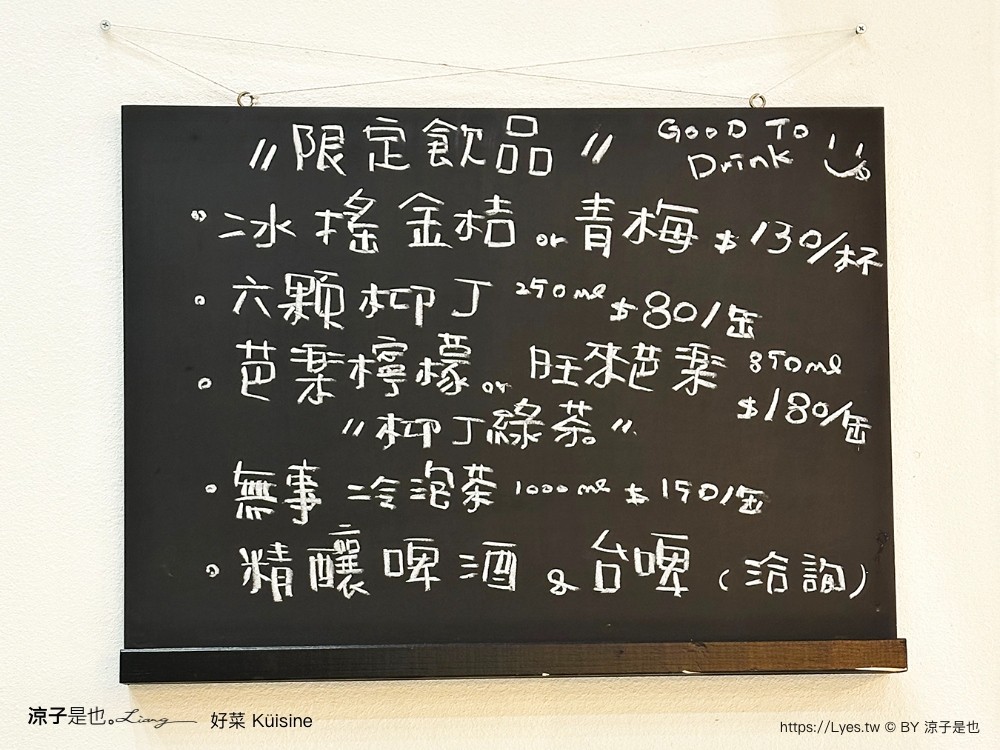 〃限定飲品〃 GOOD TO Drink
冰搖金桔 or 青梅 $130/杯
六顆柳丁 250ml $80/缶
芭樂檸檬 or 旺來芭樂 850ml
"柳丁綠茶" $180/缶
無事冷泡茶 1000ml $150/缶
精釀啤酒 & 台啤 (洽詢)
涼子是也。Liang 好菜 Küisine
https://Lyes.tw © BY 涼子是也